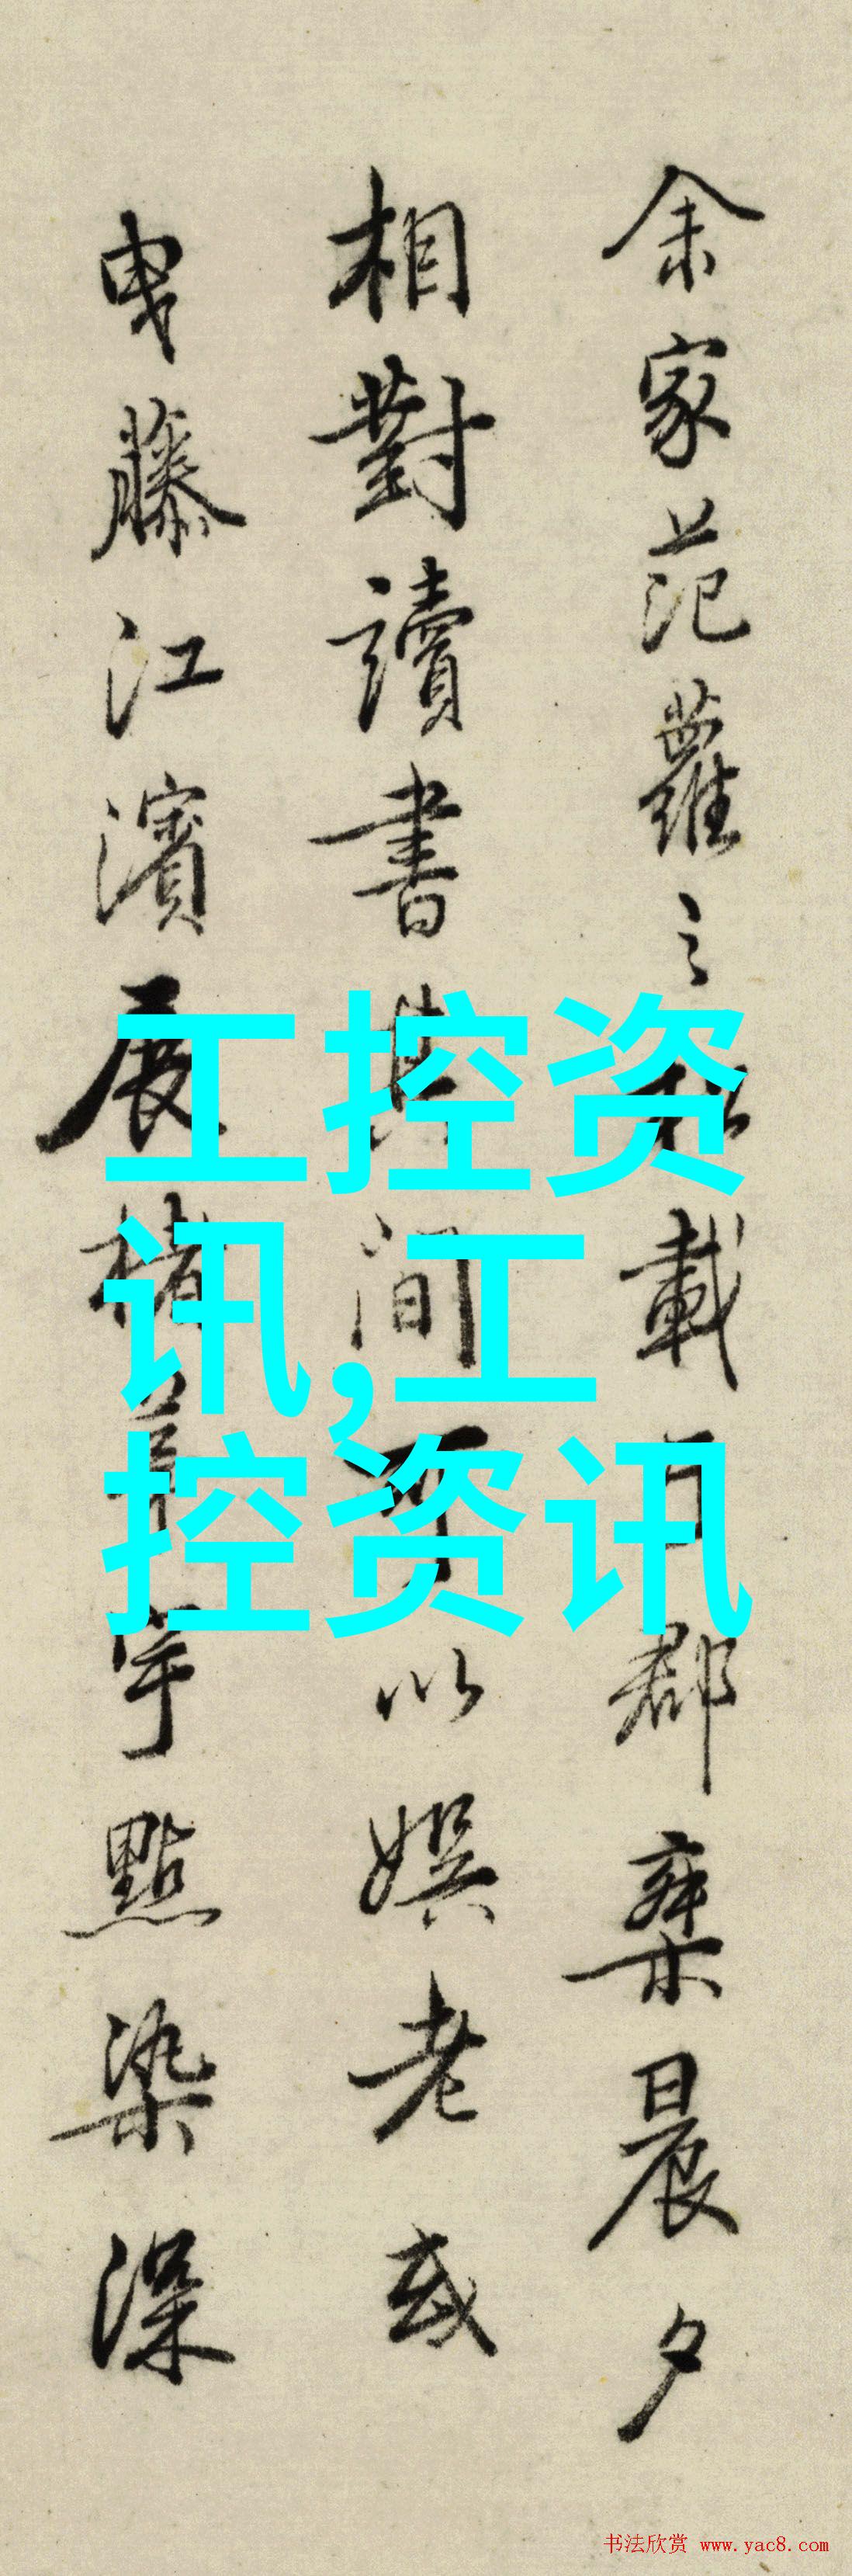 余家范蘿之 載 郡棄晨夕
相對讀書其間可以娯老或
曳藤江濱展楮 字點染深
工控资
讯,工
控资讯
书法欣赏 www.yac8.com